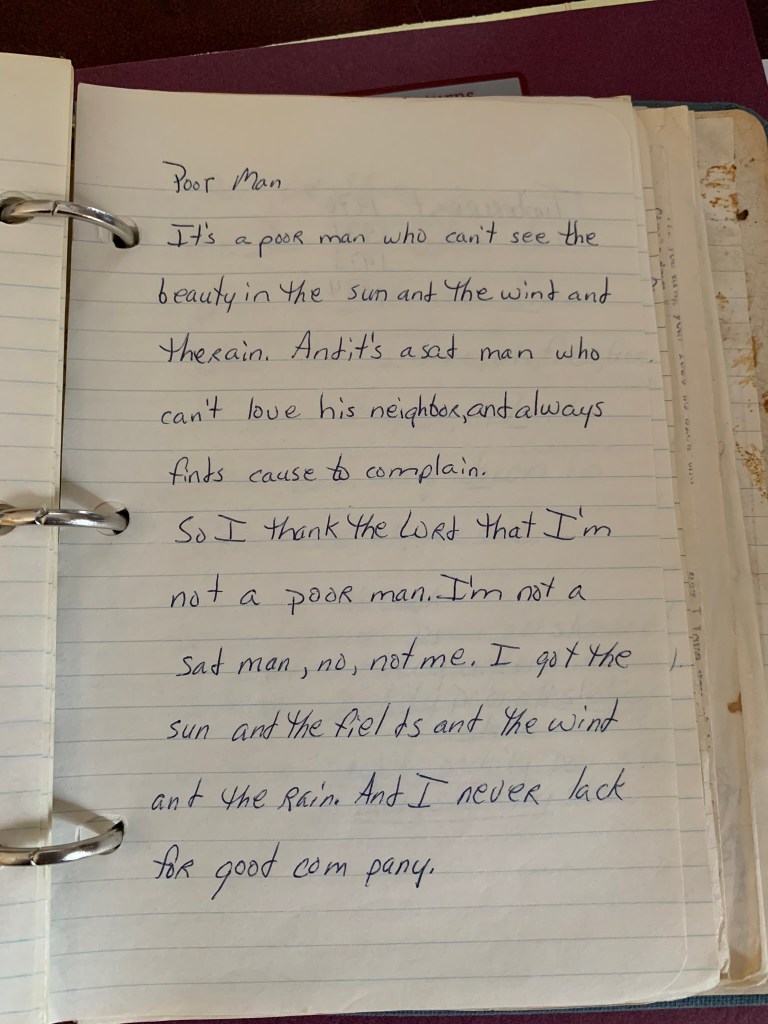 Poor Man
It's a poor man who can't see the
beauty in the sun and the wind and
the rain. And it's a sad man who
can't love his neighbor, and always
finds cause to complain.
So I thank the Lord that I'm
not a poor man. I'm not a
sad man, no, not me. I got the
sun and the fields and the wind
and the rain. And I never lack
for good company.